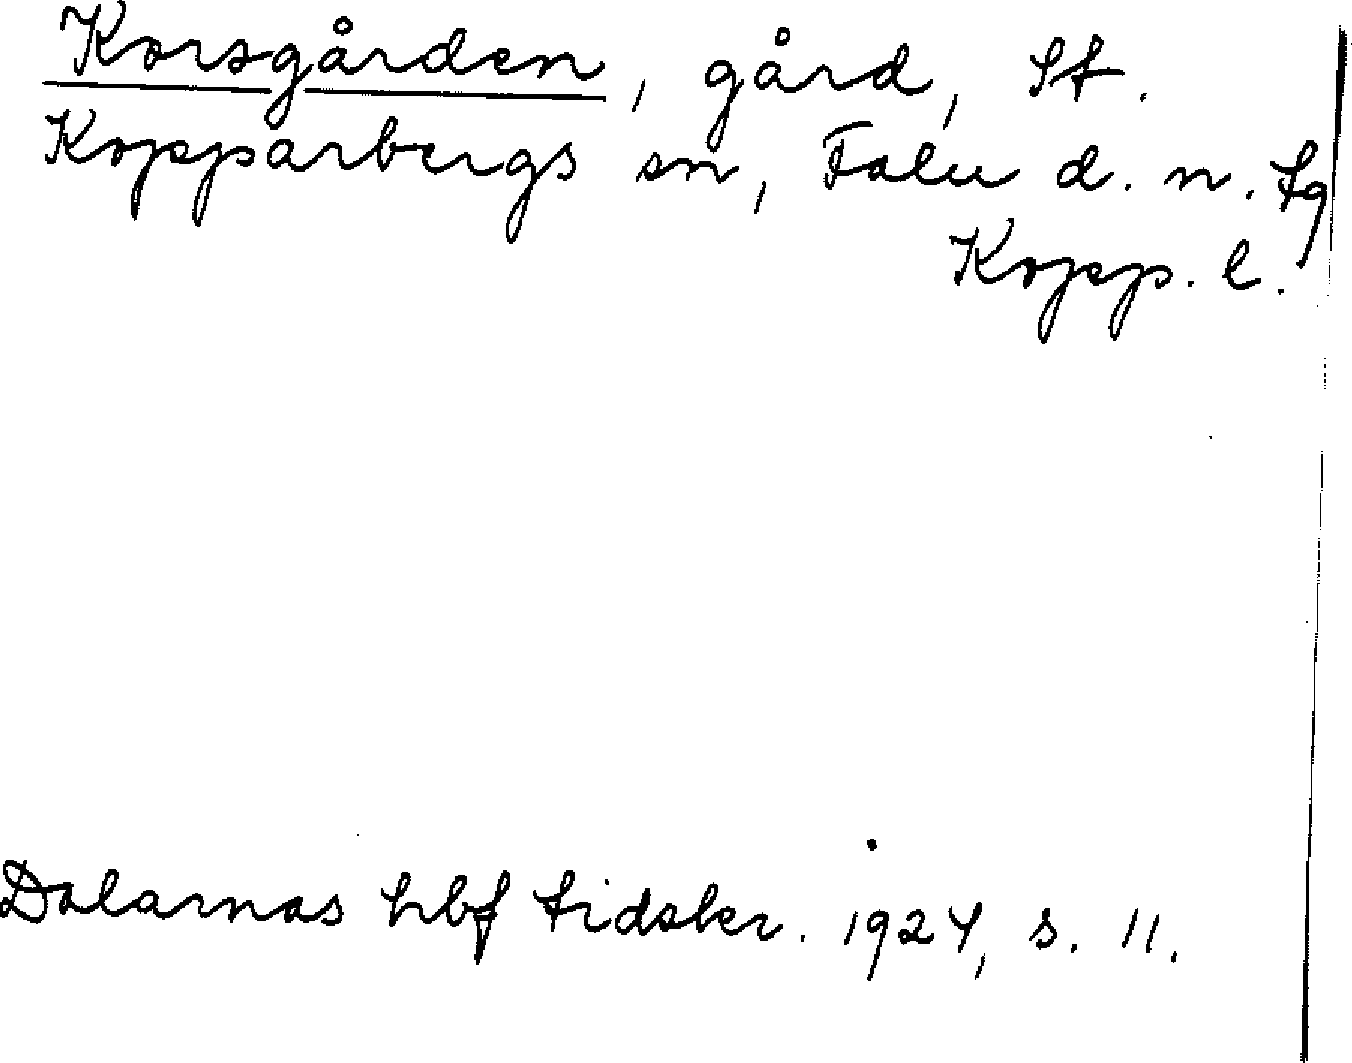 Korsgården, gård, St.
Kopparbergs sn, Falu d. n. tg
Kopp. l.
Dalarnas hbf tidskr. 1924, s. 11.